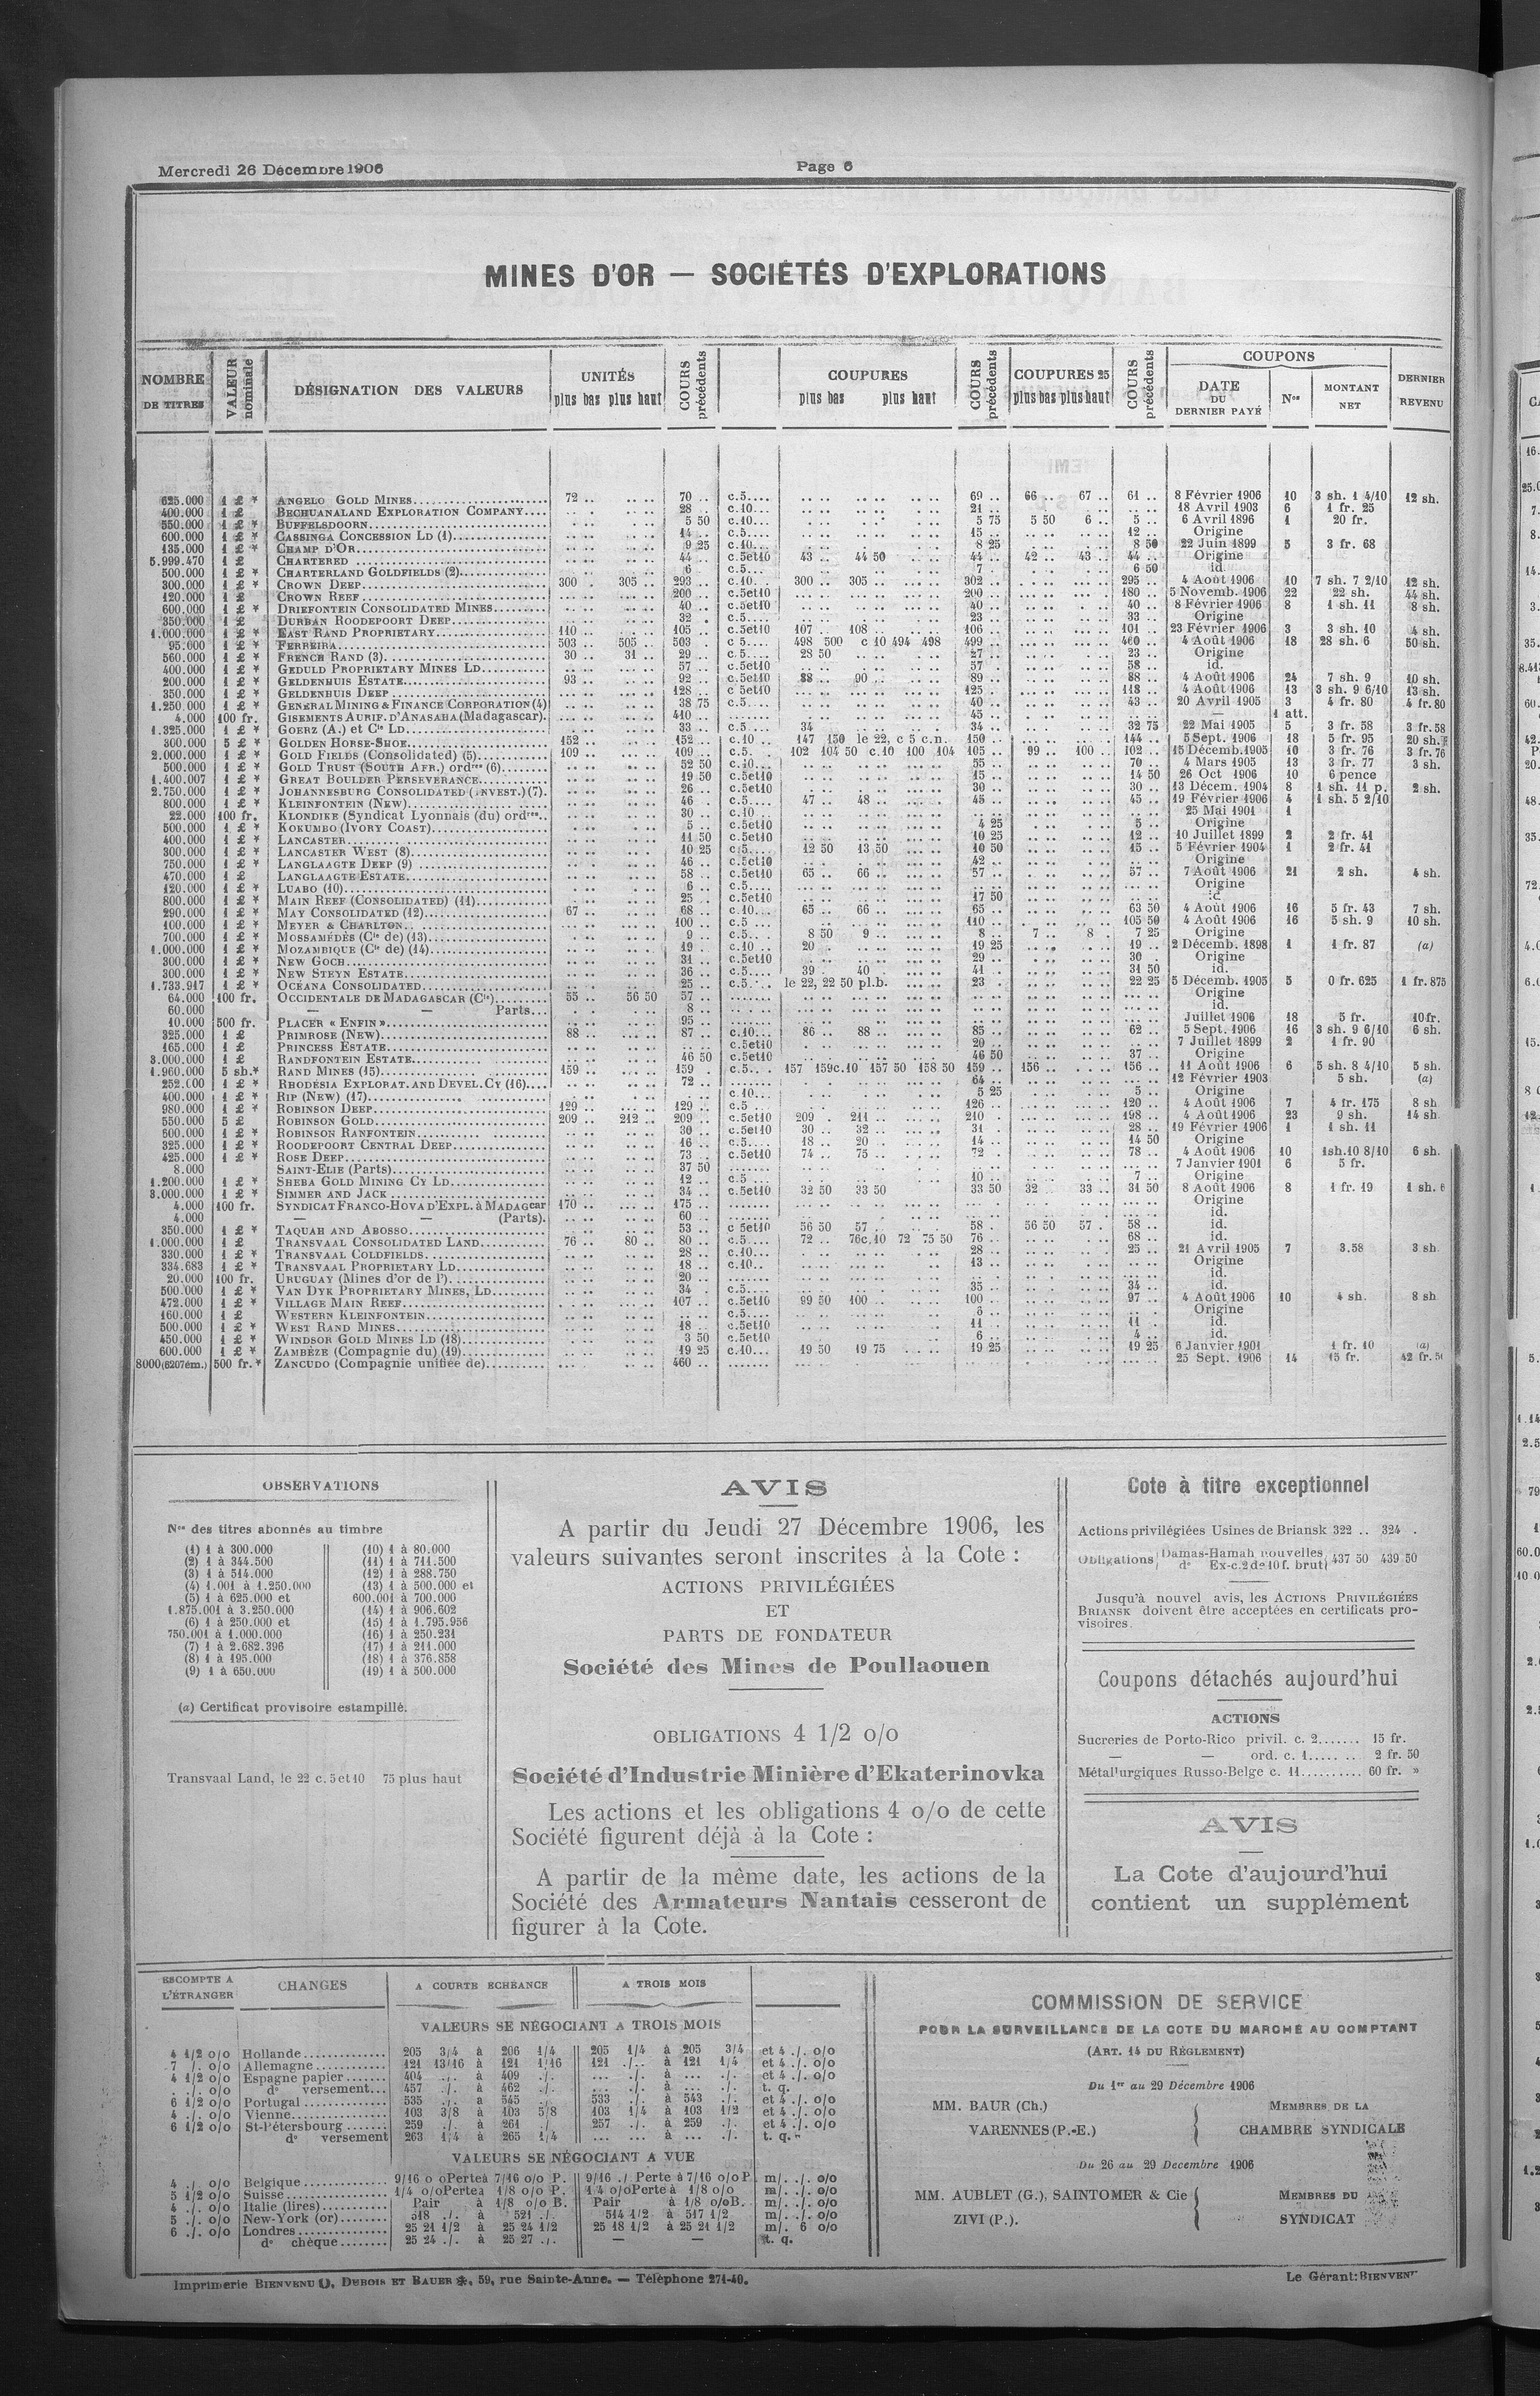 Mercredi 26 Décembre 1906 Page 6
MINES D'OR — SOCIÉTÉS D'EXPLORATIONS
NOMBRE DE TITRES | VALEUR nominale | DÉSIGNATION DES VALEURS | UNITÉS plus bas plus haut | COURS précédents | COUPURES plus bas plus haut | COURS précédents | COUPURES 25 plus bas plus haut | COURS précédents | COUPONS DATE DU DERNIER PAYÉ | Nos | MONTANT NET | DERNIER REVENU
625.000 1 £ * ANGELO GOLD MINES 72 .. 70 .. c.5 69 .. 66 .. 67 .. 61 .. 8 Février 1906 10 3 sh. 1 4/10 12 sh.
400.000 1 £ BECHUANALAND EXPLORATION COMPANY 28 .. c.10 21 .. 18 Avril 1903 6 1 fr. 25
550.000 1 £ * BUFFELSDOORN 5 50 c.10 5 75 5 50 6 .. 5 .. 6 Avril 1896 1 20 fr.
600.000 1 £ * CASSINGA CONCESSION LD (1) 14 .. c.5 15 .. 12 .. Origine
135.000 1 £ * CHAMP D'OR 9 25 c.10 8 25 8 50 22 Juin 1899 5 3 fr. 68
5.999.470 1 £ CHARTERED 44 .. c.5et10 43 .. 44 50 44 .. 42 .. 43 .. 44 .. Origine
500.000 1 £ * CHARTERLAND GOLDFIELDS (2) 6 c.5 7 6 50 id.
300.000 1 £ * CROWN DEEP 300 . 305 .. 293 .. c.10 300 .. 305 302 .. 295 .. 4 Août 1906 10 7 sh. 7 2/10 12 sh.
120.000 1 £ CROWN REEF 200 .. c.5et10 200 .. 180 .. 5 Novemb. 1906 22 22 sh. 44 sh.
600.000 1 £ * DRIEFONTEIN CONSOLIDATED MINES 40 .. c.5et10 40 .. 40 .. 8 Février 1906 8 1 sh. 11 8 sh.
350.000 1 £ DURBAN ROODEPOORT DEEP 32 . c.5et10 23 .. 33 .. Origine
1.000.000 1 £ * EAST RAND PROPRIETARY 110 .. 105 .. c.5et10 107 .. 108 .. 106 .. 101 .. 23 Février 1906 3 3 sh. 10 4 sh.
95.000 1 £ * FERREIRA 503 .. 505 .. 503 . c 5 498 500 c 10 494 498 499 .. 460 .. 4 Août 1906 18 28 sh. 6 50 sh.
560.000 1 £ * FRENCH RAND (3) 30 .. 31 .. 29 .. c.5 28 50 27 .. 23 .. Origine
400.000 1 £ * GEDULD PROPRIETARY MINES LD 57 .. c.5et10 57 .. 58 .. id.
200.000 1 £ * GELDENHUIS ESTATE 93 .. 92 .. c.5et10 88 .. 90 .. 89 .. 88 .. 4 Août 1906 24 7 sh. 9 10 sh.
350.000 1 £ * GELDENHUIS DEEP 128 .. c 5et10 125 .. 118 .. 4 Août 1906 13 3 sh. 9 6/10 13 sh.
1.250.000 1 £ * GENERAL MINING & FINANCE CORPORATION (4) 38 75 c.5 40 .. 43 .. 20 Avril 1905 3 4 fr. 80 4 fr. 80
4.000 100 fr. GISEMENTS AURIF. D'ANASAHA (Madagascar) 410 .. 45 .. — 1 att.
1.325.000 1 £ * GOERZ (A.) et Cie LD 33 .. c.5 34 .. 34 .. 32 75 22 Mai 1905 5 3 fr. 58 3 fr. 58
300.000 5 £ * GOLDEN HORSE-SHOE 152 .. 152 .. c.10 147 150 le 22, c 5 c.n. 150 .. 144 .. 5 Sept. 1906 18 5 fr. 95 20 sh.
2.000.000 1 £ * GOLD FIELDS (Consolidated) (5) 109 .. 109 .. c.5 102 104 50 c.10 100 104 105 .. 99 .. 100 .. 102 .. 15 Décemb. 1905 10 3 fr. 76 3 fr. 76
500.000 1 £ * GOLD TRUST (SOUTH AFR.) ordres (6) 52 50 c.10 55 .. 70 .. 4 Mars 1905 13 3 fr. 77 3 sh.
1.400.007 1 £ * GREAT BOULDER PERSEVERANCE 19 50 c.5et10 15 .. 14 50 26 Oct 1906 10 6 pence
2.750.000 1 £ * JOHANNESBURG CONSOLIDATED (INVEST.) (7) 26 .. c.5et10 30 .. 30 .. 13 Décem. 1904 8 1 sh. 11 p. 2 sh.
800.000 1 £ * KLEINFONTEIN (NEW) 46 . c.5 47 .. 48 .. 45 .. 45 .. 19 Février 1906 4 1 sh. 5 2/10
22.000 100 fr. KLONDIKE (Syndicat Lyonnais (du) ordres 30 .. c.10 25 Mai 1901 1
500.000 1 £ * KOKUMBO (IVORY COAST) 5 .. c.5et10 4 25 5 .. Origine
400.000 1 £ * LANCASTER 11 50 c.5et10 10 25 12 .. 10 Juillet 1899 2 2 fr. 41
300.000 1 £ * LANCASTER WEST (8) 10 25 c.5 12 50 13 50 10 50 15 .. 5 Février 1904 1 2 fr. 41
750.000 1 £ * LANGLAAGTE DEEP (9) 46 .. c.5et10 42 .. Origine
470.000 1 £ LANGLAAGTE ESTATE 58 .. c.5et10 65 .. 66 .. 57 .. 57 .. 7 Août 1906 21 2 sh. 4 sh.
120.000 1 £ * LUABO (10) 6 .. c.5 Origine
800.000 1 £ * MAIN REEF (CONSOLIDATED) (11) 25 .. c.5et10 17 50 id
290.000 1 £ * MAY CONSOLIDATED (12) 67 .. 68 .. c.10 65 .. 66 .. 65 .. 63 50 4 Août 1906 16 5 fr. 43 7 sh.
100.000 1 £ * MEYER & CHARLTON 100 .. c.5 110 .. 105 50 4 Août 1906 16 5 sh. 9 10 sh.
700.000 1 £ * MOSSAMÉDÈS (Cie de) (13) 9 .. c.5 8 50 9 .. 8 .. 7 .. 8 . 7 25 Origine
1.000.000 1 £ * MOZAMBIQUE (Cie de) (14) 19 . c.10 20 . 19 25 19 .. 2 Décemb. 1898 1 1 fr. 87 (a)
300.000 1 £ * NEW GOCH 31 .. c.5et10 29 .. 30 . Origine
300.000 1 £ * NEW STEYN ESTATE 36 .. c.5 39 . 40 . 41 . 31 50 id.
1.733.917 1 £ * OCÉANA CONSOLIDATED 25 .. c.5 le 22, 22 50 pl.b. 23 . 22 25 5 Décemb. 1905 5 0 fr. 625 1 fr. 875
64.000 100 fr. OCCIDENTALE DE MADAGASCAR (Cie) 55 .. 56 50 57 .. Origine
60.000 — — Parts 8 .. id.
10.000 500 fr. PLACER « ENFIN » 95 .. Juillet 1906 18 5 fr. 10 fr.
325.000 1 £ PRIMROSE (NEW) 88 .. 87 .. c.10 86 .. 88 .. 85 .. 62 .. 5 Sept. 1906 16 3 sh. 9 6/10 6 sh.
165.000 1 £ PRINCESS ESTATE c.5et10 20 .. 7 Juillet 1899 2 1 fr. 90
3.000.000 1 £ RANDFONTEIN ESTATE 46 50 c.5et10 46 50 37 .. Origine
1.960.000 5 sh.* RAND MINES (15) 159 .. 159 . c.5 157 159 c.10 157 50 158 50 159 .. 156 .. 156 .. 11 Août 1906 6 5 sh. 8 4/10 5 sh.
252.000 1 £ * RHODÉSIA EXPLORAT. AND DEVEL. CY (16) 72 .. 64 .. 12 Février 1903 5 sh. (a)
400.000 1 £ * RIP (NEW) (17) c.10 5 25 5 .. Origine
980.000 1 £ * ROBINSON DEEP 129 .. 129 .. c.5 126 .. 120 .. 4 Août 1906 7 4 fr. 175 8 sh
550.000 5 £ ROBINSON GOLD 209 .. 212 .. 209 .. c.5et10 209 . 211 .. 210 . 198 .. 4 Août 1906 23 9 sh. 14 sh
600.000 1 £ * ROBINSON RANFONTEIN 30 .. c.5et10 30 .. 32 .. 31 . 28 .. 19 Février 1906 1 1 sh. 11
325.000 1 £ * ROODEPOORT CENTRAL DEEP 16 .. c.5 18 .. 20 . 14 .. 14 50 Origine
425.000 1 £ * ROSE DEEP 73 .. c.5et10 74 .. 75 .. 72 . 78 .. 4 Août 1906 10 1sh.10 8/10 6 sh.
8.000 SAINT-ELIE (Parts) 37 50 7 Janvier 1901 6 5 fr.
1.200.000 1 £ * SHEBA GOLD MINING CY LD 12 .. c.5 10 .. 7 .. Origine
3.000.000 1 £ * SIMMER AND JACK 34 .. c.5et10 32 50 33 50 33 50 32 . 33 .. 31 50 8 Août 1906 8 1 fr. 19 1 sh. 6
4.000 100 fr. SYNDICAT FRANCO-HOVA D'EXPL. à MADAGcar 170 .. 175 .. Origine
4.000 — — (Parts) 60 .. id.
350.000 1 £ * TAQUAH AND ABOSSO 53 .. c 5et10 56 50 57 . 58 . 56 50 57 . 58 .. id.
1.000.000 1 £ TRANSVAAL CONSOLIDATED LAND 76 .. 80 .. 80 .. c.5 72 .. 76c.10 72 75 50 76 .. 68 .. id.
330.000 1 £ * TRANSVAAL COLDFIELDS 28 .. c.10 28 .. 25 .. 21 Avril 1905 7 3.58 3 sh
334.683 1 £ * TRANSVAAL PROPRIETARY LD 18 .. c.10 13 .. Origine
20.000 100 fr. URUGUAY (Mines d'or de l') 20 .. id.
500.000 1 £ * VAN DYK PROPRIETARY MINES, LD 34 . c.5 35 .. 34 .. id.
472.000 1 £ * VILLAGE MAIN REEF 107 .. c.5et10 99 50 100 .. 100 . 97 .. 4 Août 1906 10 4 sh. 8 sh
160.000 1 £ WESTERN KLEINFONTEIN c.5 Origine
500.000 1 £ * WEST RAND MINES 18 .. c.5et10 11 .. 11 . id.
450.000 1 £ * WINDSOR GOLD MINES LD (18) 3 50 c.5et10 6 .. 4 .. id.
600.000 1 £ ZAMBÈZE (Compagnie du) (19) 19 25 c.10 19 50 19 75 19 25 19 25 6 Janvier 1901 1 fr. 10 (a)
8000 (6207ém.) 500 fr.* ZANCUDO (Compagnie unifiée de) 460 .. 25 Sept. 1906 14 15 fr. 42 fr.
OBSERVATIONS
Nos des titres abonnés au timbre
(1) 1 à 300.000
(2) 1 à 344.500
(3) 1 à 514.000
(4) 1.001 à 1.250.000
(5) 1 à 625.000 et
1.875.001 à 3.250.000
(6) 1 à 250.000 et
750.001 à 1.000.000
(7) 1 à 2.682.396
(8) 1 à 195.000
(9) 1 à 650.000
(10) 1 à 80.000
(11) 1 à 711.500
(12) 1 à 288.750
(13) 1 à 500.000 et
600.001 à 700.000
(14) 1 à 906.602
(15) 1 à 1.795.956
(16) 1 à 250.231
(17) 1 à 211.000
(18) 1 à 376.858
(19) 1 à 500.000
(a) Certificat provisoire estampillé.
Transvaal Land, le 22 c. 5 et 10 75 plus haut
AVIS
A partir du Jeudi 27 Décembre 1906, les
valeurs suivantes seront inscrites à la Cote :
ACTIONS PRIVILÉGIÉES
ET
PARTS DE FONDATEUR
Société des Mines de Poullaouen
OBLIGATIONS 4 1/2 o/o
Société d'Industrie Minière d'Ekaterinovka
Les actions et les obligations 4 o/o de cette
Société figurent déjà à la Cote :
A partir de la même date, les actions de la
Société des Armateurs Nantais cesseront de
figurer à la Cote.
Cote à titre exceptionnel
Actions privilégiées Usines de Briansk 322 .. 324 .
Obligations Damas-Hamah nouvelles
do Ex-c.2 de 10 f. brut 437 50 439 50
Jusqu'à nouvel avis, les ACTIONS PRIVILÉGIÉES
BRIANSK doivent être acceptées en certificats pro-
visoires.
Coupons détachés aujourd'hui
ACTIONS
Sucreries de Porto-Rico privil. c. 2 15 fr.
— — ord. c. 1 2 fr. 50
Métallurgiques Russo-Belge c. 11 60 fr. »
AVIS
La Cote d'aujourd'hui
contient un supplément
ESCOMPTE A L'ÉTRANGER | CHANGES | A COURTE ECHEANCE | A TROIS MOIS
VALEURS SE NÉGOCIANT A TROIS MOIS
4 1/2 o/o Hollande 205 3/4 à 206 1/4 205 1/4 à 205 3/4 et 4 ./. o/o
7 /. o/o Allemagne 121 13/16 à 121 1/16 121 ./. à 121 1/4 et 4 ./. o/o
4 1/2 o/o Espagne papier 404 ./. à 409 ./. ... ./. à ... ./. et 4 ./. o/o
. ./. o/o do versement 457 ./. à 462 ./. ... ./. à ... ./. t. q.
6 1/2 o/o Portugal 535 ./. à 545 ./. 533 ./. à 543 ./. et 4 ./. o/o
4 ./. o/o Vienne 103 3/8 à 103 5/8 103 1/4 à 103 1/2 et 4 ./. o/o
6 1/2 o/o St-Pétersbourg 259 ./. à 261 ./ 257 ./. à 259 ./. et 4 ./. o/o
do versement 263 1/4 à 265 1/4 ... ... à ... ./. t. q.
VALEURS SE NÉGOCIANT A VUE
4 ./. o/o Belgique 9/16 o oPerteà 7/16 o/o P. 9/16 ./ Perte à 7/16 o/o P. m/. ./. o/o
5 1/2 o/o Suisse 1/4 o/oPerteà 1/8 o/o P. 1/4 o/oPerteà 1/8 o/o m/. ./. o/o
4 ./. o/o Italie (lires) Pair à 1/8 o/o B. Pair à 1/8 o/oB. m/. ./. o/o
5 ./. o/o New-York (or) 518 ./. à 521 ./ 514 1/2 à 517 1/2 m/. ./. o/o
6 ./. o/o Londres 25 21 1/2 à 25 24 1/2 25 18 1/2 à 25 21 1/2 m/. 6 o/o
do chèque 25 24 ./. à 25 27 ./. — — t. q.
COMMISSION DE SERVICE
POUR LA SURVEILLANCE DE LA COTE DU MARCHÉ AU COMPTANT
(ART. 14 DU RÉGLEMENT)
Du 1er au 29 Décembre 1906
MM. BAUR (Ch.) MEMBRES DE LA
VARENNES (P.-E.) CHAMBRE SYNDICALE
Du 26 au 29 Décembre 1906
MM. AUBLET (G.), SAINTOMER & Cie MEMBRES DU
ZIVI (P.). SYNDICAT
Imprimerie BIENVENU, DUBOIS ET BAUER, 59, rue Sainte-Anne. — Téléphone 271-40.
Le Gérant: BIENVENU